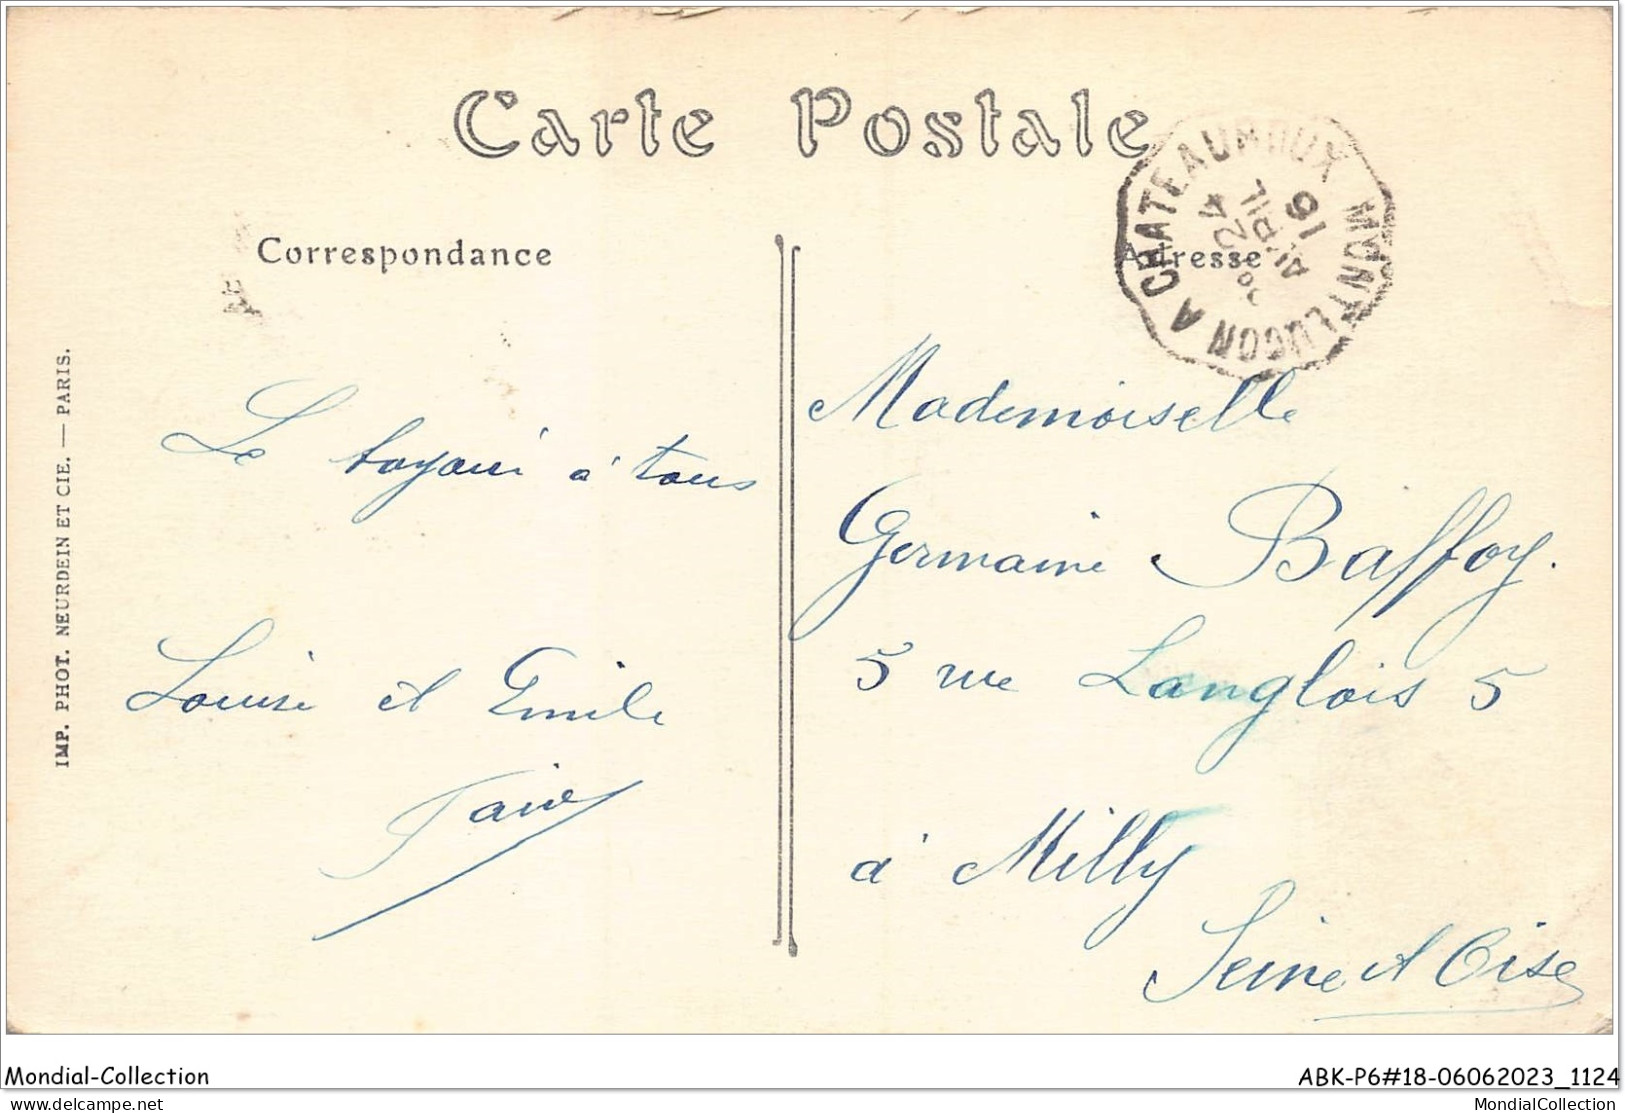 Carte Postale
Correspondance
Adresse
MONTLUCON A CHATEAUROUX
16
AVRIL
24
IMP. PHOT. NEURDEIN ET CIE. — PARIS.
Le à tous
Louise et Emile
Mademoiselle
Germaine Baffoy.
5 rue Langlois 5
à Milly
Seine et Oise
Mondial-Collection
ABK-P6#18-06062023_1124
delcampe.net
MondialCollection